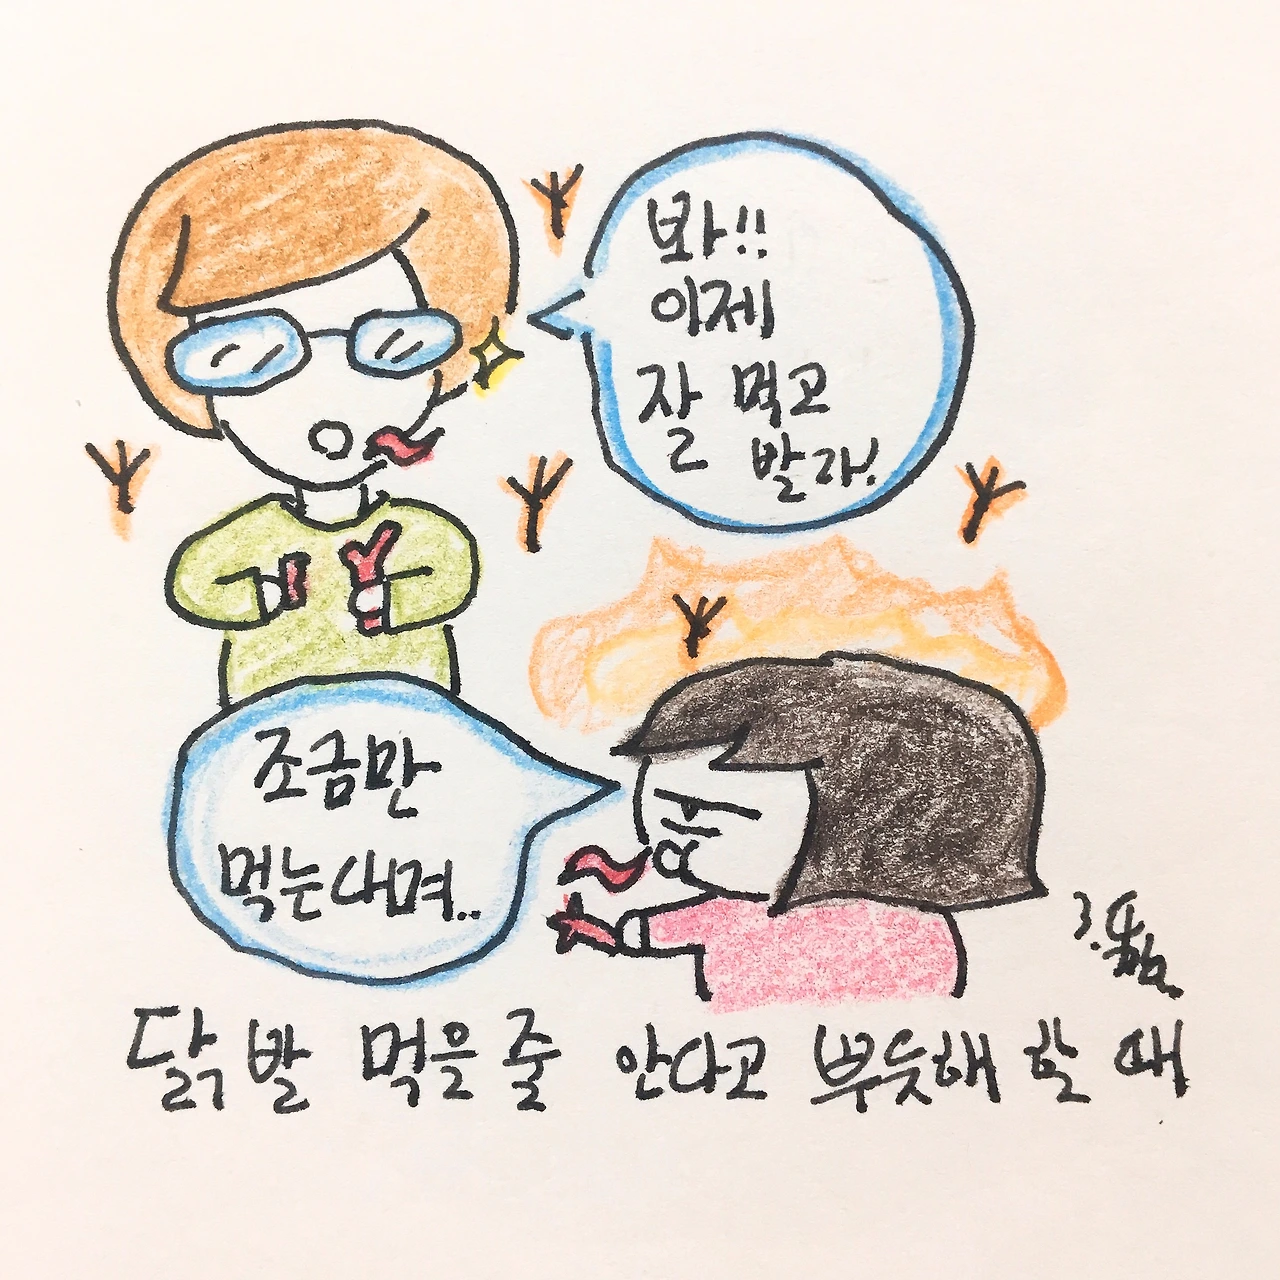 봐!!
이제
잘 먹고
발라!
조금만
먹는대며..
닭발 먹을줄 안다고 뿌듯해 할 때